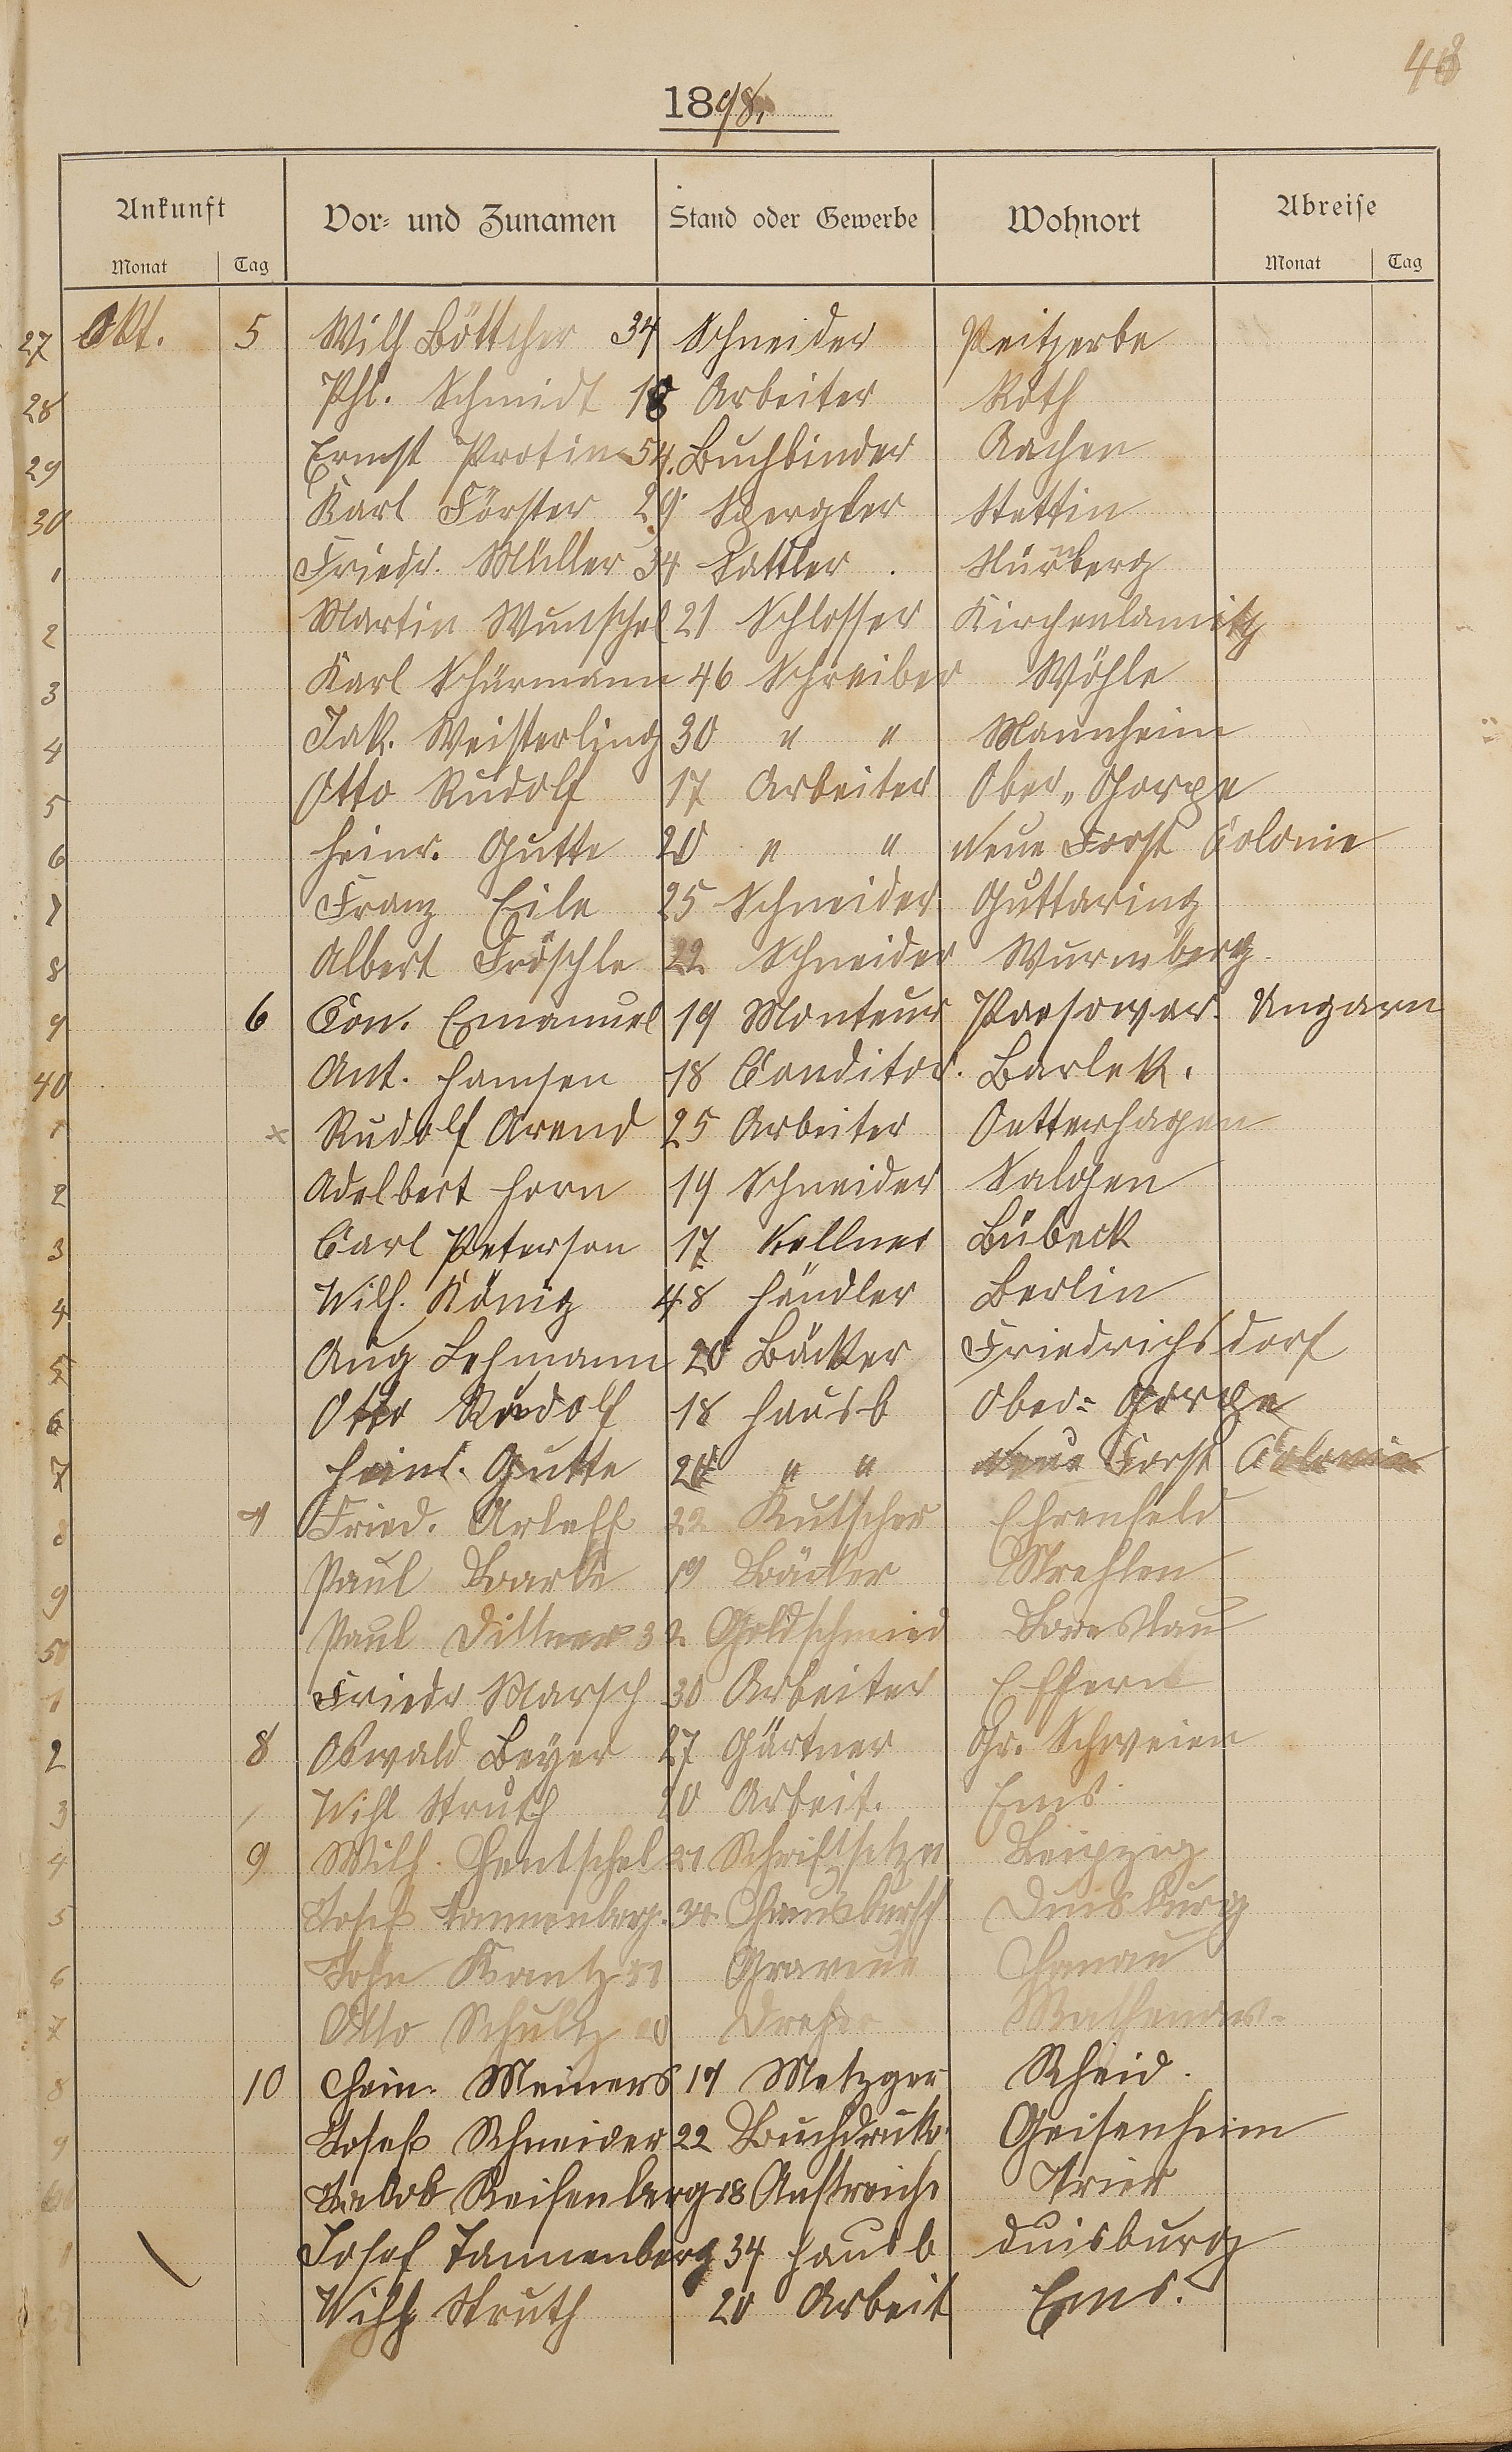 48
1898.
Ankunft Vor- und Zunamen Stand oder Gewerbe Wohnort Abreise
Monat Tag Monat Tag
27 Okt. 5 Wilh Böttcher 34 Schneider Peitzerbe
28 Phl. Schmidt 18 Arbeiter Roth
29 Ernst Protin 54. Buchbinder Aachen
30 Karl Förster 29 Spergler Stettin
1 Friedr. Müller 34 Sattler. Nürnberg
2 Martin Wunschel 21 Schlosser Kirchenlamitz
3 Karl Schürmann 46 Schreiber Wöhle
4 Jak. Weisterling 30 " " Mannheim
5 Otto Rudolf 17 Arbeiter Ober-Gorpe
6 Heinr. Gutte 20 " " Neue Forst Colonie
7 Franz Eile 25 Schneider Guttaring
8 Albert Fröschle 22 Schneider Wurmberg
9 6 Con. Emanuel 19 Monteur Ungarn
40 Ant. Hansen 18 Conditor. Barlek.
1 x Rudolf Arend 25 Arbeiter Oetterhagen
2 Adelbert Horn 19 Schneider Salchen
3 Carl Peterson 17 Kellner Lübeck
4 Wilh. König 48 Händler Berlin
5 Aug Lehmann 20 Bäcker Friedrichsdorf
6 Otto Rudolf 18 Hausb Ober- Gorpe
7 Heinr. Gutte 20 " " Neue Forst Colonie
8 7 Fried. Arleff 22 Kutscher Ehrenfeld
9 Paul Barke 19 Bäcker Strehlen
50 Paul Dittner 32 Goldschmied Breslau
1 Friedr Marsch 30 Arbeiter Effern
2 8 Oswald Beyer 27 Gärtner Gr. Schweien
3 Wihl Struth 20 Arbeit. Ems
4 9 Wilh. Hentschel 21 Schriftsetzer Leipzig
5 Josef Tannenberg. 34 Hausbursch Duisburg
6 John Krantz 21 Graveur Hanau
7 Otto Schultz 20 Dreher
8 10 Hein. Meiners 19 Metzger Rheid.
9 Josef Schneider 22 Buchdruk. Geisenheim
60 Jakob Reifenberg 18 Anstreich Trier
1 Josef Tannenberg 34 Hausb Duisburg
Wihl Struth 20 Arbeit Ems.